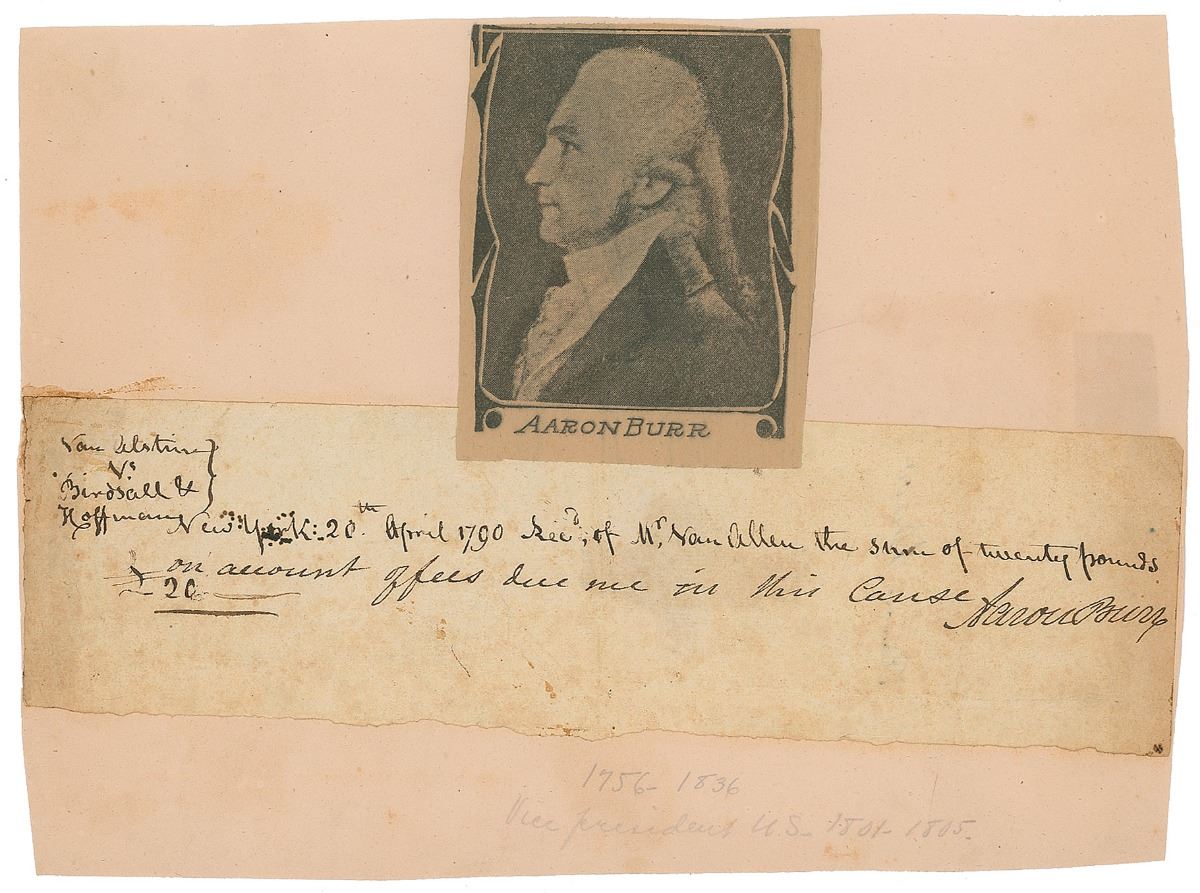 AARON BURR
Van Alstine
Vs
Birdsall &
Hoffman
New York: 20th April 1790 Recd, of Mr, Van Allen the sum of twenty pounds
on account of fees due me in this Cause
£20
Aaron Burr
1756-1836
Vice president U.S. 1801-1805.